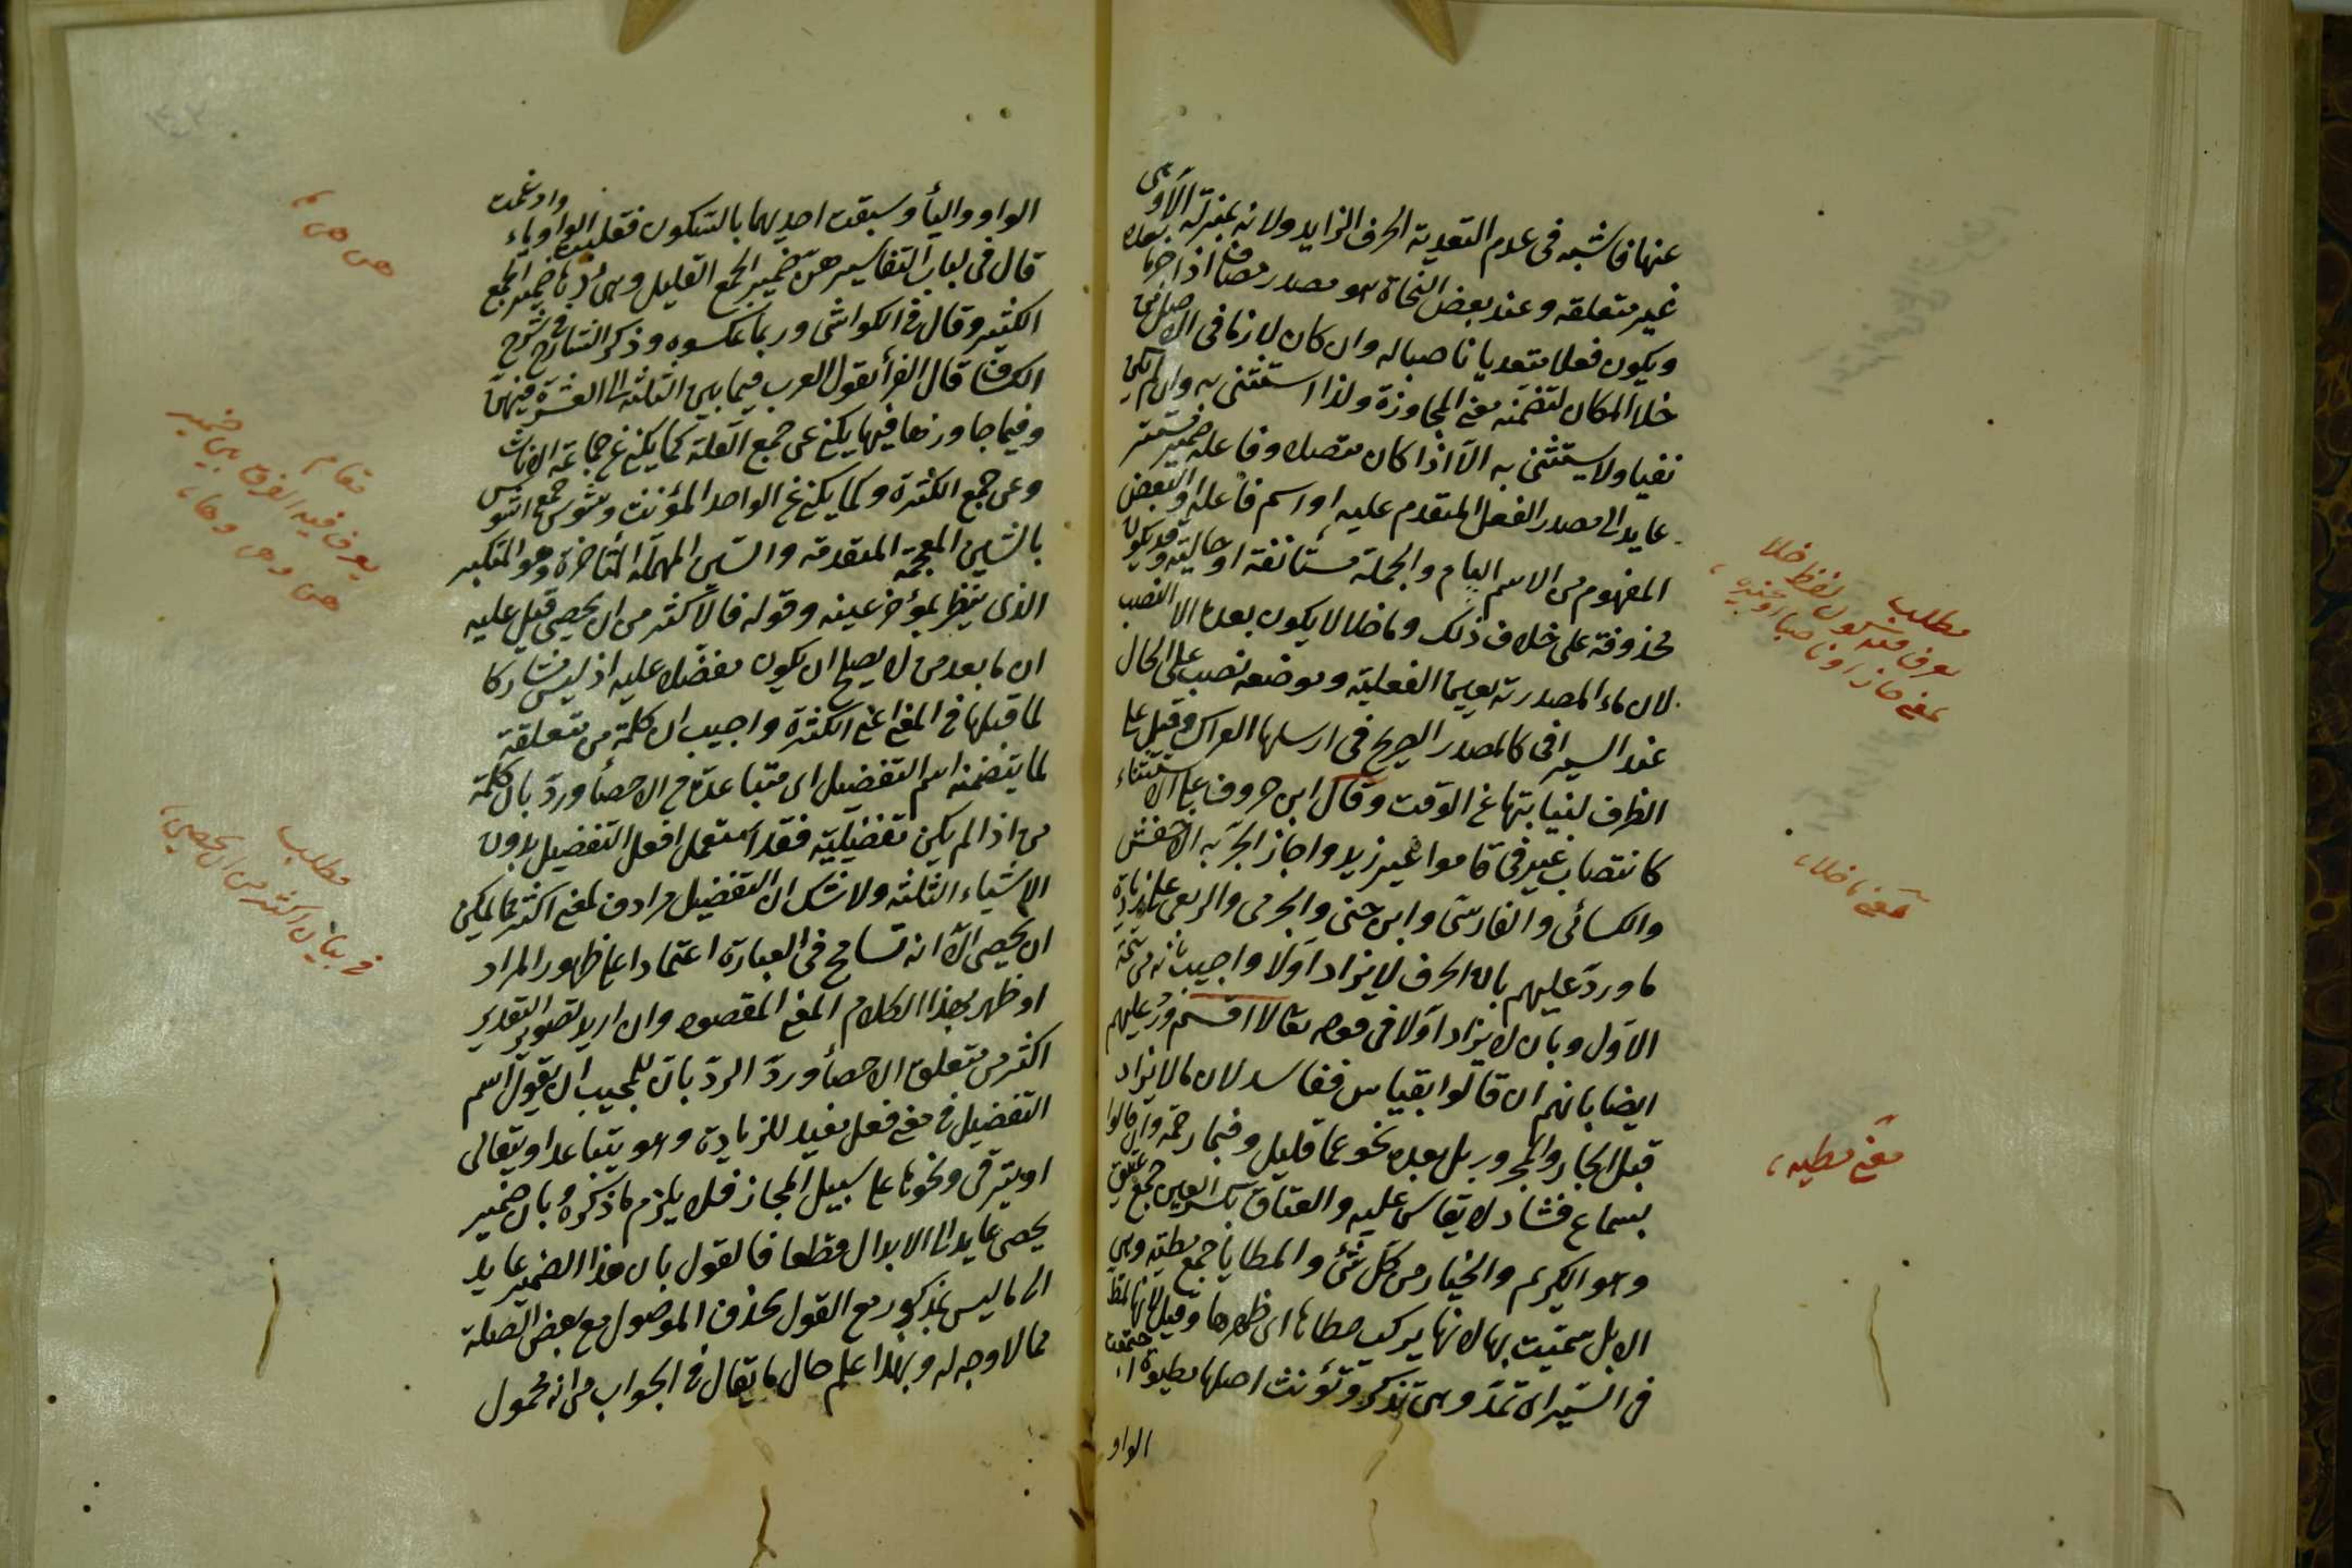 عنها فاشبه فى عدم التعدية الحرف الزايد ولانه بمنزلة الا وهى
غير متعلقه وعند بعض النحاة هو مصدر مضاف اذا جر ما بعده
ويكون فعلا متعديا ناصبا له وان كان لازما فى الاصل
خلا المكان لتضمنه معنى المجاوزة ولذا استثنى به وان لم يكن
نفيا ولا يستثنى به الا اذا كان متصلا وفاعله ضمير مستتر
عايد الى مصدر الفعل المتقدم عليه او اسم فاعله او البعض
المفهوم من الاسم العام والجملة مستأنفة او حالية وقد يكون
محذوفة على خلاف ذلك وما خلا لا يكون بعدها الا النصب
لان ماء المصدرية يعينها الفعلية وموضعه نصب على الحال
عند السيرافى كالمصدر الصريح فى ارسلها العراك وقيل على
الظرف لنيابتها عن الوقت وقال ابن خروف على الاستثناء
كانتصاب غير فى قاموا غير زيد واجاز الجر به الاخفش
والكسائى والفارسى وابن جنى والجرمى والربعى على زيادة
ما ورد عليهم بان الحرف لا يزاد اولا واجيب بانه من تتمة
الاول وبان لا يزاد اولا فى قوله تعالى لا اقسم ورد عليهم
ايضا بانهم ان قالوا بقياس ففاسد لان ما لا يزاد
قبل الجار والمجرور بل بعده نحو عما قليل وفبما رحمة وان قالوا
بسماع فشاذ لا يقاس عليه والعتاق بكسر العين جمع عتيق
وهو الكريم والخيار من كل شئ والمطايا جمع مطية وهى
الابل سميت بها لانها يركب مطاها اى ظهرها وقيل لانها تمط
فى السير اى تمد وهى تذكر وتؤنث اصلها مطيوة اجتمعت
الواو
مطلب
يعرف منه كون لفظ خلا
بمعنى جاز او ناصبا او غيره
معنى ما خلا
معنى مطيه
الواو والياء وسبقت احديهما بالسكون فقلبت الواو ياء وادغمت
قال فى لباب التفاسير هن ضمير الجمع القليل وهى ربما ضمير الجمع
الكثير وقال فى الكواشى وربما عكسوه وذكر الشارح فى شرح
الكشاف قال الفراء يقول العرب فيما بين الثلثة الى العشرة فيهن
وفيما جاوزها فيها يكنى عن جمع القلة كما يكنى عن جماعة الاناث
وعن جمع الكثرة وكما يكنى عن الواحد المؤنث وشوس جمع اشوس
بالشين المعجمة المتقدمة والسين المهملة المتأخرة وهو المتكبر
الذى ينظر بمؤخر عينه وقوله فالاكثر من ان يحصى قيل عليه
ان ما بعد من لا يصلح ان يكون مفضلا عليه اذ ليس مشاركا
لما قبلها فى المعنى اعنى الكثرة واجيب ان كلمة من متعلقة
لما يتضمنه اسم التفضيل اى متباعدة من الاحصاء ورد بان كلمة
من اذا لم يكن تفضيلية فقد استعمل افعل التفضيل بدون
الاشياء الثلثة ولا شك ان التفضيل مرادف لمعنى اكثر مما يمكن
ان يحصى الا انه تسامح فى العبارة اعتمادا على ظهور المراد
او ظهر بهذا الكلام المعنى المقصود وان اريد تصوير التقدير
اكثر من متعلق الاحصاء ورد الرد بان للمجيب ان يقول اسم
التفضيل فى معنى فعل يفيد للزيادة وهو يتباعد او يتعالى
او يترقى ونحوها على سبيل المجاز فلا يلزم ما ذكره وبان ضمير
يحصى عايد الى الابدال قطعا فالقول بان هذا الضمير عايد
الى ما ليس بمذكور مع القول بحذف الموصول مع بعض الصلة
مما لا وجه له وبهذا علم حال ما يقال فى الجواب من انه محمول
هن هى
مقام
يعرف فيه الفرق بين ضمير
هن وهى وها
مطلب
فى بيان اكثر من ان يحصى